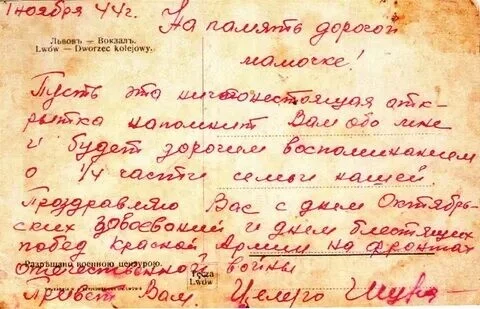 1 ноября 44г.
На память дорогой
мамочке!
Львовъ – Вокзалъ.
Lwów – Dworzec kolejowy.
Пусть эта ничегонестоящая отк-
рытка напомнит Вам обо мне
и будет дорогим воспоминанием
о 1/4 части семьи нашей.
Поздравляю Вас с днем Октябрь-
ских завоеваний и днем блестящих
побед красной Армии на фронтах
отечественной войны
Разрѣшено военною цензурою.
Tęcza
Lwów
Привет Вам. Целую Шура